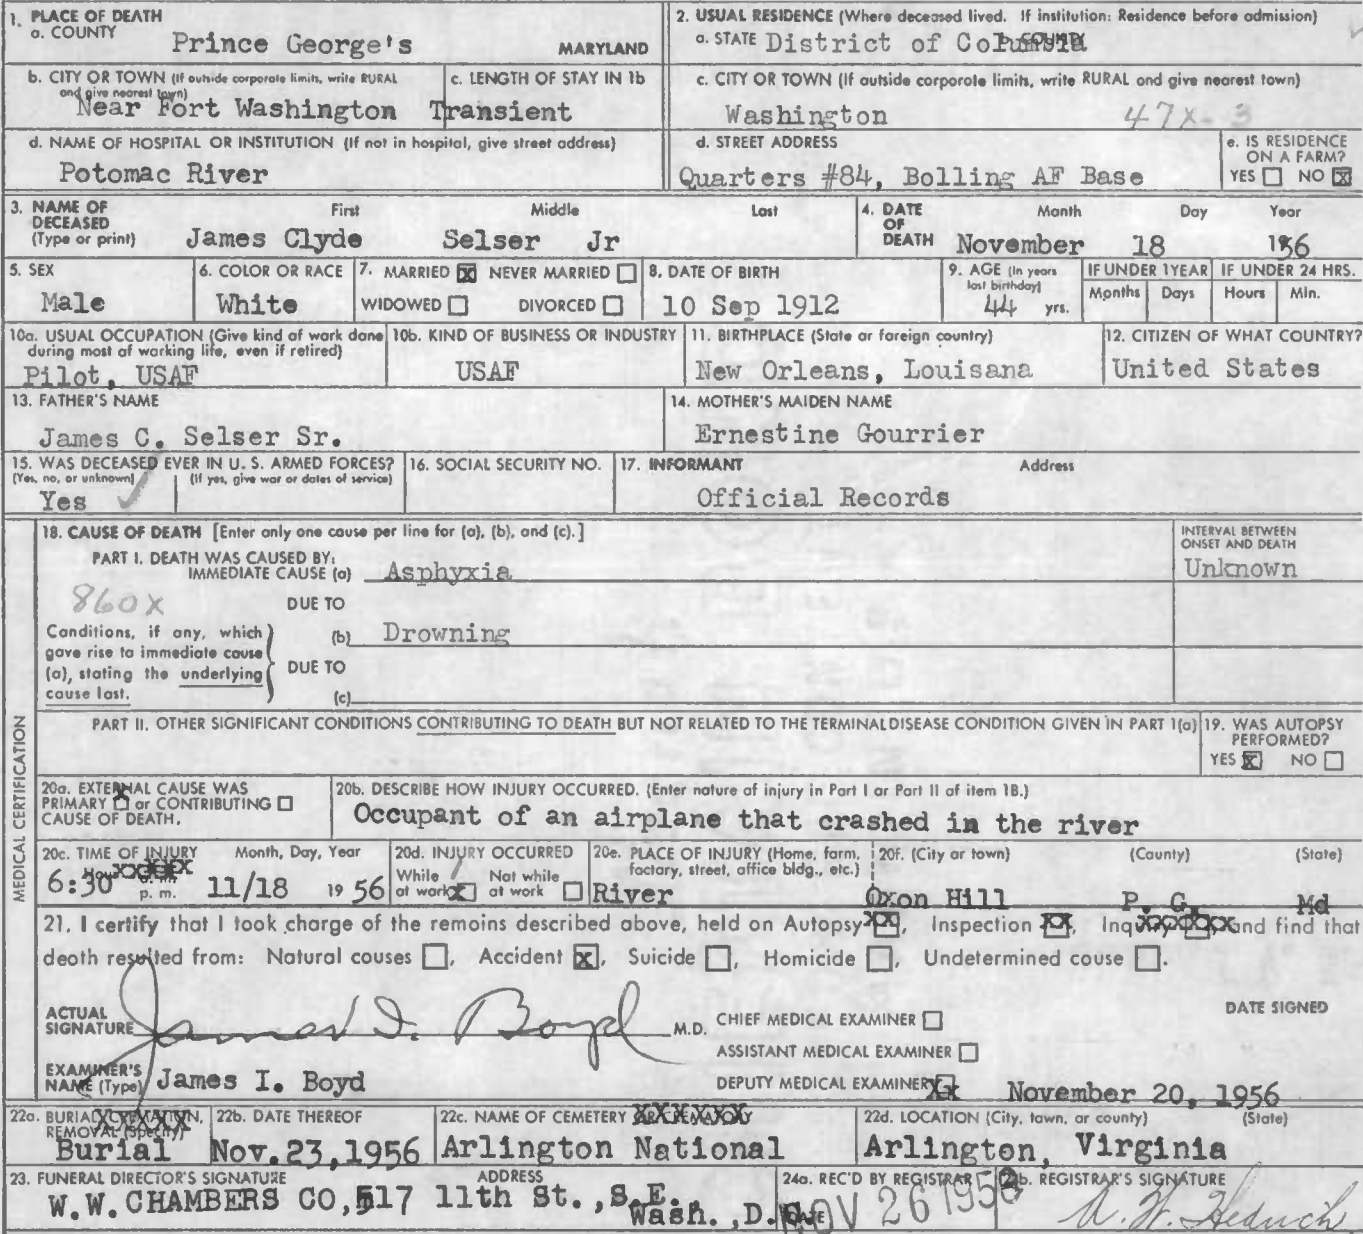 1. PLACE OF DEATH
a. COUNTY Prince George's MARYLAND
2. USUAL RESIDENCE (Where deceased lived. If institution: Residence before admission)
a. STATE District of Columbia b. COUNTY
b. CITY OR TOWN (If outside corporate limits, write RURAL and give nearest town)
Near Fort Washington
c. LENGTH OF STAY IN 1b
Transient
c. CITY OR TOWN (If outside corporate limits, write RURAL and give nearest town)
Washington 47X-3
d. NAME OF HOSPITAL OR INSTITUTION (If not in hospital, give street address)
Potomac River
d. STREET ADDRESS
Quarters #84, Bolling AF Base
e. IS RESIDENCE ON A FARM?
YES NO X
3. NAME OF DECEASED (Type or print)
First Middle Last
James Clyde Selser Jr
4. DATE OF DEATH
Month Day Year
November 18 1956
5. SEX
Male
6. COLOR OR RACE
White
7. MARRIED X NEVER MARRIED
WIDOWED DIVORCED
8. DATE OF BIRTH
10 Sep 1912
9. AGE (In years last birthday)
44 yrs.
IF UNDER 1 YEAR
Months Days
IF UNDER 24 HRS.
Hours Min.
10a. USUAL OCCUPATION (Give kind of work done during most of working life, even if retired)
Pilot, USAF
10b. KIND OF BUSINESS OR INDUSTRY
USAF
11. BIRTHPLACE (State or foreign country)
New Orleans, Louisana
12. CITIZEN OF WHAT COUNTRY?
United States
13. FATHER'S NAME
James C. Selser Sr.
14. MOTHER'S MAIDEN NAME
Ernestine Gourrier
15. WAS DECEASED EVER IN U. S. ARMED FORCES?
(Yes, no, or unknown) (If yes, give war or dates of service)
Yes
16. SOCIAL SECURITY NO.
17. INFORMANT Address
Official Records
MEDICAL CERTIFICATION
18. CAUSE OF DEATH [Enter only one cause per line for (a), (b), and (c).]
INTERVAL BETWEEN ONSET AND DEATH
PART I. DEATH WAS CAUSED BY:
IMMEDIATE CAUSE (a) Asphyxia Unknown
860X
DUE TO
Conditions, if any, which gave rise to immediate cause (a), stating the underlying cause last.
(b) Drowning
DUE TO
(c)
PART II. OTHER SIGNIFICANT CONDITIONS CONTRIBUTING TO DEATH BUT NOT RELATED TO THE TERMINAL DISEASE CONDITION GIVEN IN PART 1(a)
19. WAS AUTOPSY PERFORMED?
YES X NO
20a. EXTERNAL CAUSE WAS
PRIMARY X or CONTRIBUTING
CAUSE OF DEATH.
20b. DESCRIBE HOW INJURY OCCURRED. (Enter nature of injury in Part I or Part II of item 18.)
Occupant of an airplane that crashed in the river
20c. TIME OF INJURY Month, Day, Year
6:30 p. m. 11/18 1956
20d. INJURY OCCURRED
While at work X Not while at work
20e. PLACE OF INJURY (Home, farm, factory, street, office bldg., etc.)
River
20f. (City or town) (County) (State)
Oxon Hill P. G. Md
21. I certify that I took charge of the remains described above, held an Autopsy XX, Inspection XX, Inquiry XXXXXX and find that
death resulted from: Natural causes , Accident X, Suicide , Homicide , Undetermined cause .
ACTUAL SIGNATURE James I. Boyd M.D.
CHIEF MEDICAL EXAMINER
DATE SIGNED
ASSISTANT MEDICAL EXAMINER
EXAMINER'S NAME (Type) James I. Boyd
DEPUTY MEDICAL EXAMINER Xx November 20, 1956
22a. BURIAL, CREMATION, REMOVAL (Specify)
Burial
22b. DATE THEREOF
Nov.23,1956
22c. NAME OF CEMETERY OR CREMATORY
Arlington National
22d. LOCATION (City, town, or county) (State)
Arlington, Virginia
23. FUNERAL DIRECTOR'S SIGNATURE ADDRESS
W.W. CHAMBERS CO, 517 11th St., S.E. Wash., D.C.
24a. REC'D BY REGISTRAR
DATE NOV 26 1956
24b. REGISTRAR'S SIGNATURE